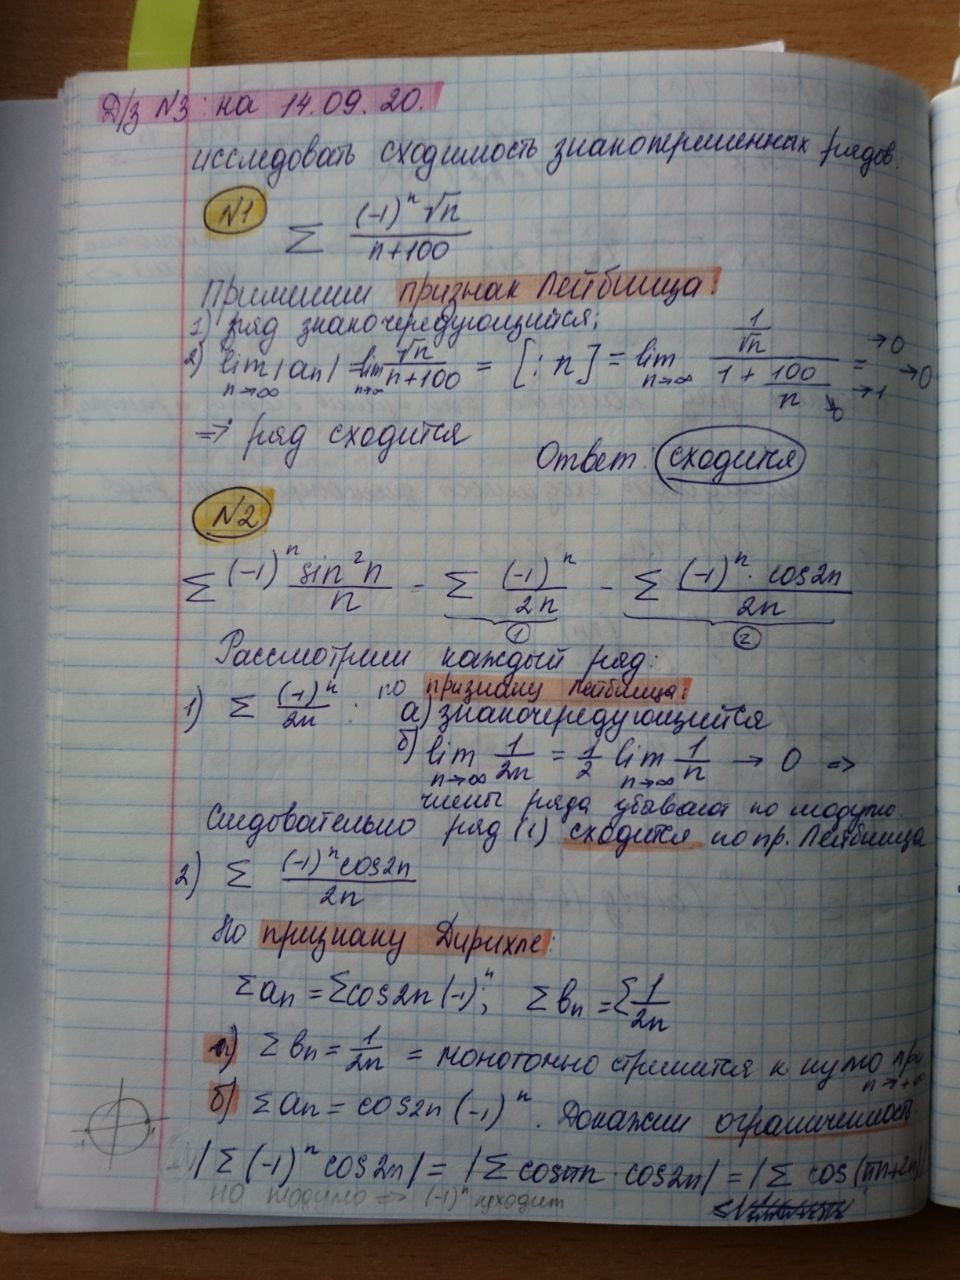 Д/з №3: на 14.09.20.
исследовать сходимость знакопеременных рядов.
№1 ∑ (-1)^n √n / (n+100)
Применим признак Лейбница:
1) ряд знакочередующийся;
2) lim_{n→∞} |an| = lim_{n→∞} √n / (n+100) = [: n] = lim_{n→∞} (1/√n) / (1 + 100/n) = →0 / →1 →0
→0
⇒ ряд сходится
Ответ: сходится
№2
∑ (-1)^n sin²n / n = ∑ (-1)^n / 2n - ∑ (-1)^n · cos2n / 2n
① ②
Рассмотрим каждый ряд:
1) ∑ (-1)^n / 2n : по признаку Лейбница:
а) знакочередующийся
б) lim_{n→∞} 1/2n = 1/2 lim_{n→∞} 1/n → 0 ⇒
члены ряда убывают по модулю.
Следовательно ряд (1) сходится по пр. Лейбница
2) ∑ (-1)^n cos2n / 2n
По признаку Дирихле:
∑an = ∑cos2n (-1)^n; ∑вn = ∑ 1/2n
а) ∑вn = 1/2n = монотонно стремится к нулю при n→+∞
б) ∑an = cos2n (-1)^n. Докажем ограниченность:
|∑(-1)^n cos2n| = |∑ cosπn · cos2n| = |∑ cos(πn+2n)|
по модулю ⇒ (-1)^n уходит